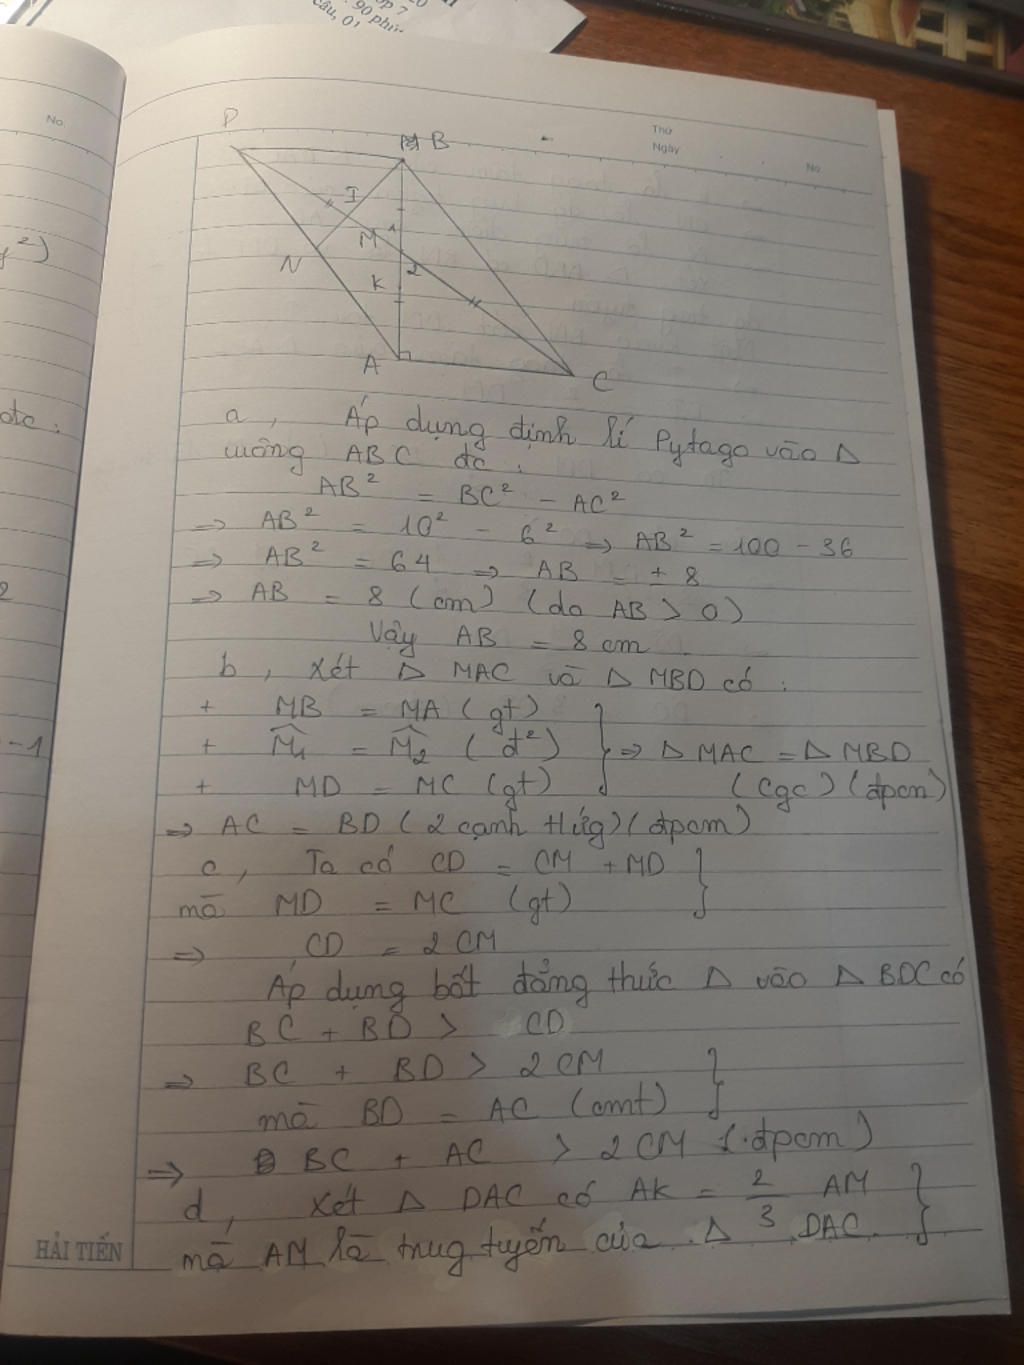 ớp 7
90 phút
câu, 01
No.
Thứ
Ngày
No.
D
B
I
M
1
2
N
K
A
C
y²)
đtc.
2
-1
a, Áp dụng định lí Pytago vào Δ
vuông ABC đc:
AB² = BC² - AC²
=> AB² = 10² - 6² => AB² = 100 - 36
=> AB² = 64 => AB = ± 8
=> AB = 8 (cm) (do AB > 0)
Vậy AB = 8 cm
b, Xét Δ MAC và Δ MBD có:
+ MB = MA (gt)
+ M̂₁ = M̂₂ (đ²) } => Δ MAC = Δ MBD
+ MD = MC (gt) (cgc) (đpcm)
=> AC = BD (2 cạnh tứg) (đpcm)
c, Ta có CD = CM + MD }
mà MD = MC (gt)
=> CD = 2 CM
Áp dụng bất đẳng thức Δ vào Δ BDC có
BC + BD > CD
=> BC + BD > 2 CM }
mà BD = AC (cmt)
=> BC + AC > 2 CM (đpcm)
d, Xét Δ DAC có AK = 2/3 AM }
mà AM là trug tuyến của Δ DAC
HẢI TIẾN